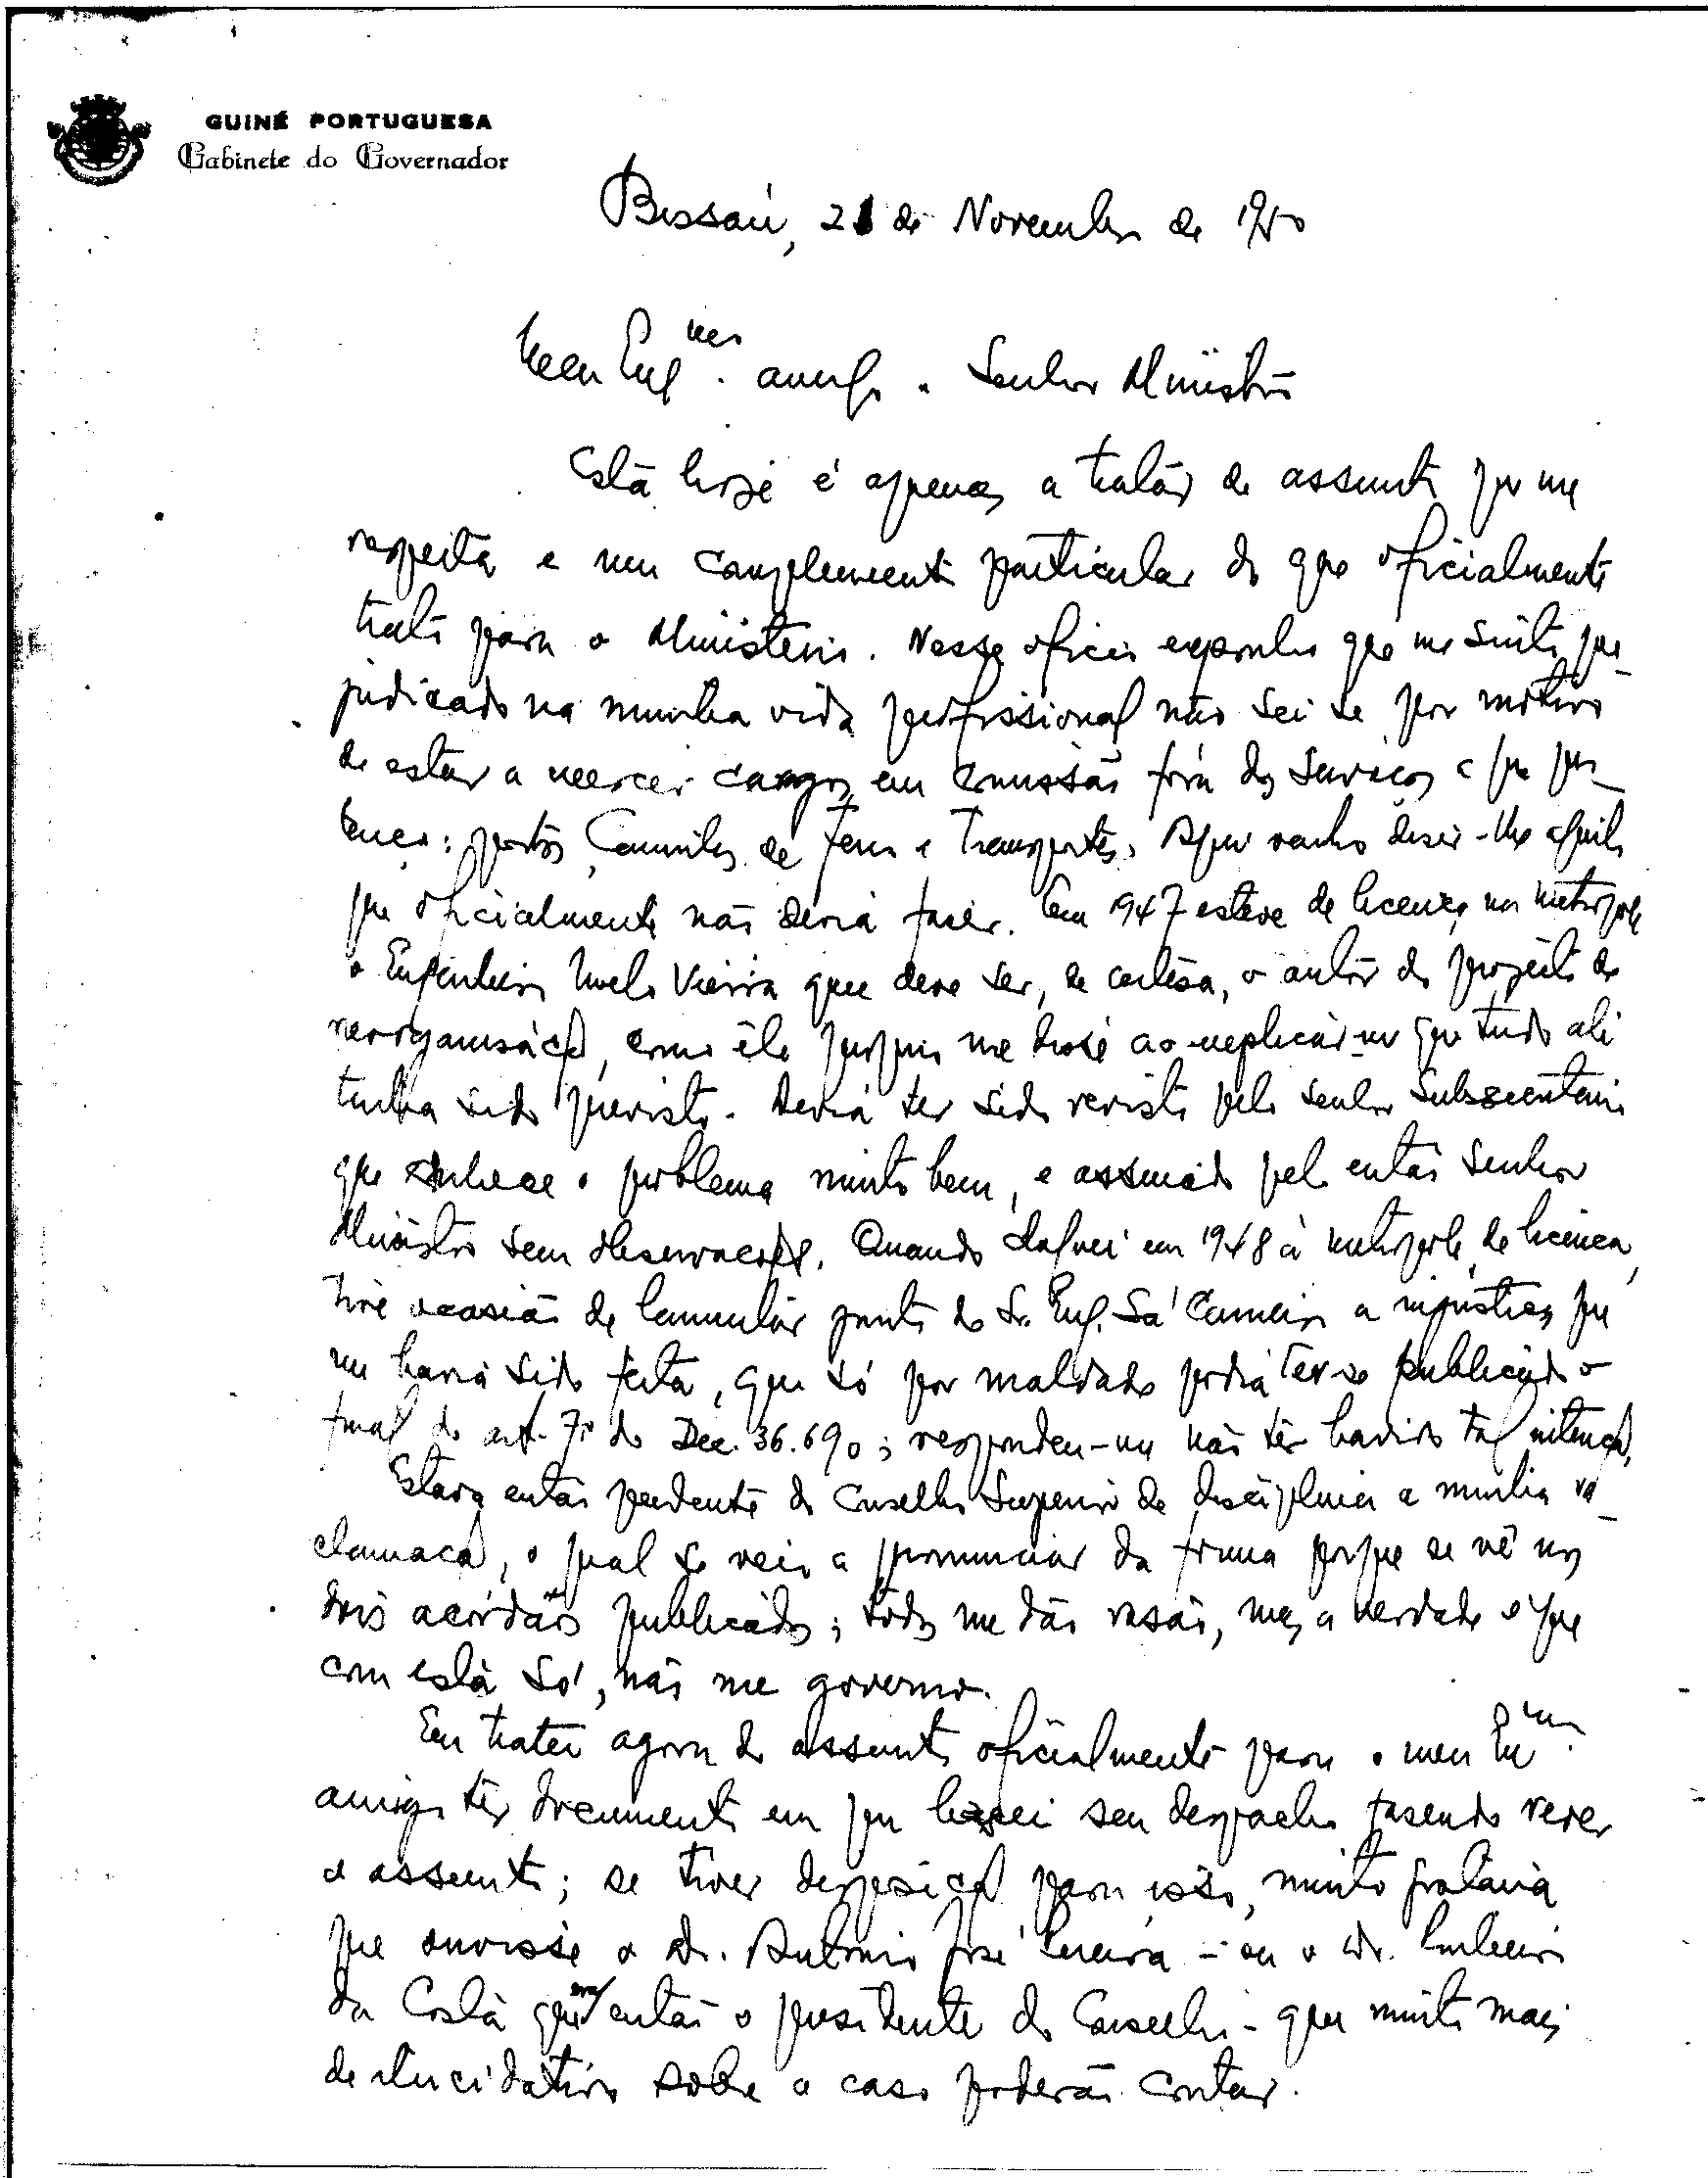 GUINÉ PORTUGUESA
Gabinete do Governador
Bissau, 21 de Novembro de 1950
Meu Exmo. amigo e Senhor Ministro
Esta hoje é apenas a tratar de assunto que me
respeita e um complemento particular do que oficialmente
trato para o Ministerio. Nesse oficio exponho que me sinto pre-
judicado na minha vida profissional não sei se por motivo
de estar a exercer cargos em comissão fóra dos serviços a que per-
tenço: portos, Caminhos de Ferro e Transportes. Aqui venho dizer-lhe aquilo
que oficialmente não devia fazer. Em 1947 esteve de licença na metropole
o Engenheiro Melo Vieira que deve ser, de certeza, o autor do projeto de
reorganisação, como êle proprio me disse ao explicar-me que tudo ali
tinha sido previsto. Devia ter sido revisto pelo senhor Subsecretario
que conhece o problema muito bem, e assinado pelo então Senhor
Ministro sem observações. Quando cheguei em 1948 á metropole, de licença,
tive ocasião de lamentar junto do Sr. Eng. Sá Carneiro a injustiça que
me havia sido feita, que só por maldade podia ter-se publicado o
final do art. 7º do Dec. 36.690; respondeu-me não ter havido tal intenção.
Estava então pendente do Conselho Superior de disciplina a minha re-
clamação, o qual se veio a pronunciar da forma porque se vê nos
dois acórdãos publicados; todos me dão rasão, mas a verdade é que
com esta só, não me governo.
Eu tratei agora do assunto oficialmente para o meu Exmo.
amigo ter documento em que baseie seu despacho fasendo rever
o assunto; se tiver disposição para isso, muito gostaria
que ouvisse o Dr. Antonio José - ou o Dr.
da Costa que era então o presidente do Conselho - que muito mais
de elucidativo sobre o caso poderão contar.